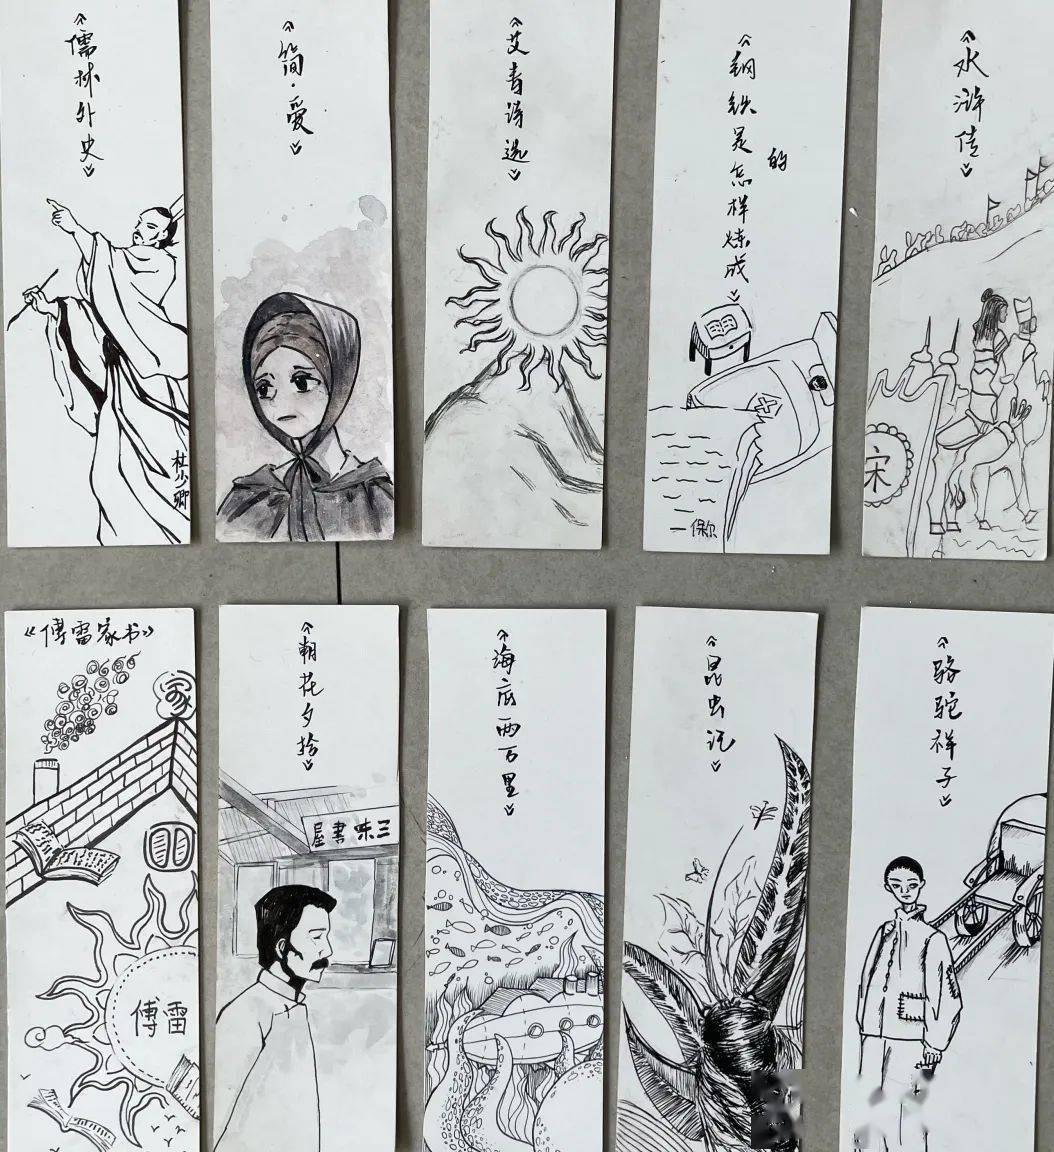 《儒林外史》
杜少卿
《简·爱》
《艾青诗选》
《钢铁是怎样炼成》
的
—保尔
《水浒传》
宋
《傅雷家书》
家
傅雷
《朝花夕拾》
三味書屋
《海底两万里》
《昆虫记》
《骆驼祥子》